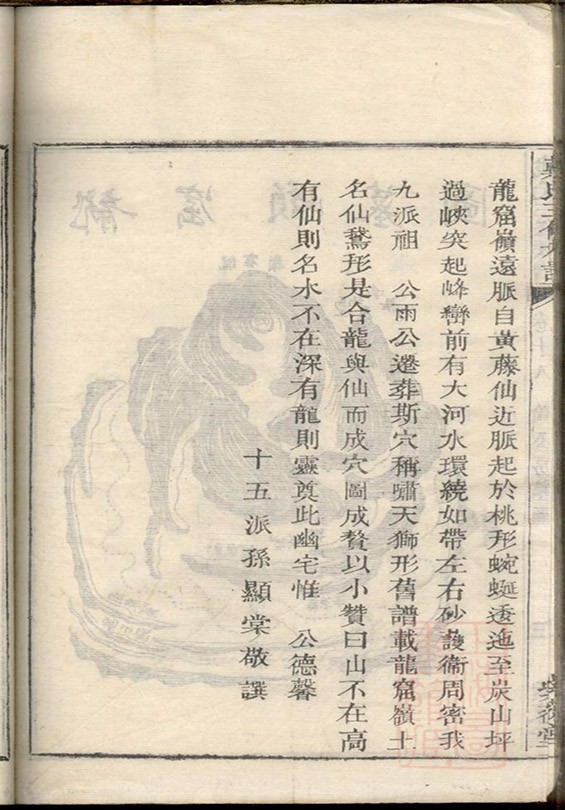 龍窟嶺遠脈自黃藤仙近脈起於桃形蜿蜒透迆至炭山坪
過峽突起峰巒前有大河水環繞如帶左右砂護衛周密我
九派祖 公雨公遷葬斯穴稱嘯天獅形舊譜載龍窟嶺土
名仙鵞形是合龍與仙而成穴圖成贅以小贊曰山不在高
有仙則名水不在深有龍則靈奠此幽宅惟 公德馨
十五派孫顯棠敬譔